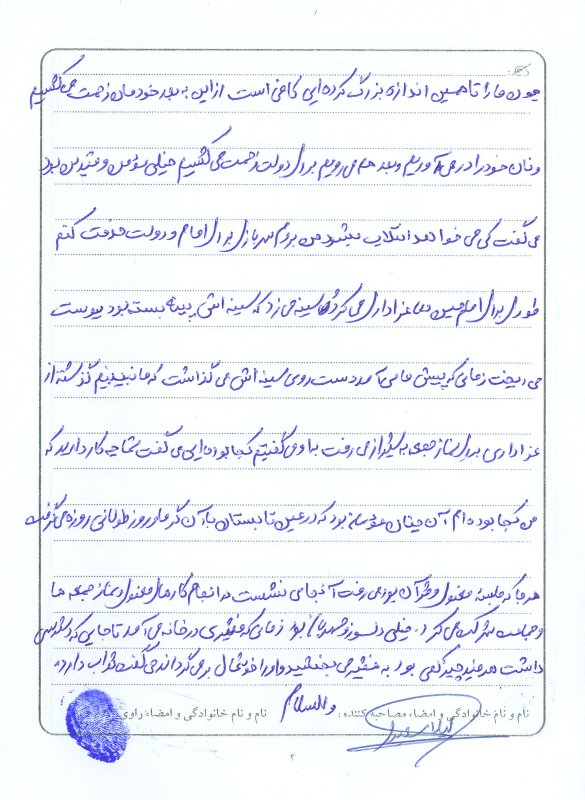 چون ما را تا همین اندازه بزرگ کرده‌ایی کافی است از این به بعد خودمان زحمت می‌کشیم
و نان خود را در می‌آوریم و بعد هم می‌رویم برای دولت زحمت می‌کشیم خیلی مؤمن و متدین بود
می‌گفت کی می‌خواهد انقلاب بشود من بروم سربازی برای امام و دولت خدمت کنم
طوری برای امام حسین عزاداری می‌کرد سینه می‌زد که سینه اش پینه بسته بود پوست
می‌ریخت زمانی که پیش ما می‌آمد دست روی سینه اش می‌گذاشت که ما نبینیم گذشته از
عزاداری برای نماز جمعه به شیراز می‌رفت به او می‌گفتیم کجا بوده‌ایی می‌گفت شما چه کار دارید که
من کجا بوده‌ام آن چنان مؤمن بود که در عین تابستان با آن گرما روز طولانی روزه می‌گرفت
هر جا که جلسه و قرآن بود می‌رفت آنجا می‌نشست در انجام کارهای و نماز جمعه ها
و جماعت شرکت می‌کرد. خیلی دلسوز و مهربان بود زمانی که فقیری در خانه می‌آمد تا جایی که دسترسی
داشت هر چیز کمی بود به فقیر می‌بخشید و او را خوشحال بر می‌گرداند می‌گفت ثواب دارد.
والسلام
نام و نام خانوادگی و امضاء مصاحبه کننده:
نام و نام خانوادگی و امضاء راوی
۲